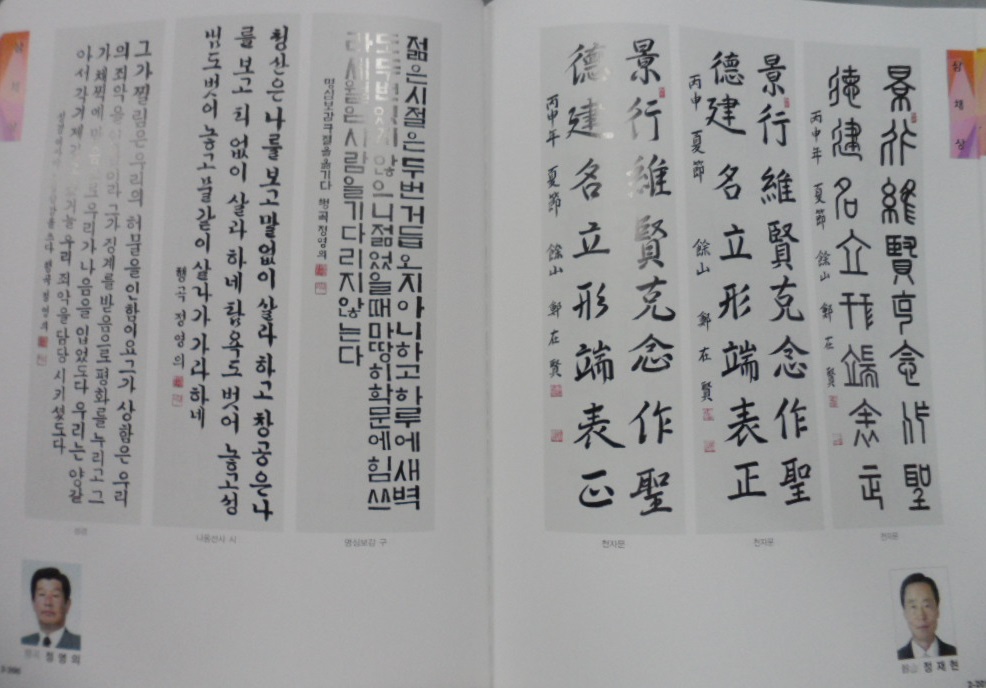 삼체상
젊은시절은두번거듭오지아니하고하루에새벽
도두번있지않으니젊었을때마땅히학문에힘쓰
라세월은사람을기다리지않는다
명심보감구절을옮기다 행곡정영의
명심보감 구
청산은나를보고말없이살라하고창공은나
를보고티없이살라하네탐욕도벗어놓고성
냄도벗어놓고물같이살다가가라하네
행곡정영의
나옹선사 시
그가찔림은우리의허물을인함이요그가상함은우리
의죄악을 그가징계를받음으로평화를누리고그
가채찍에 우리가나음을입었도다우리는양같
아서각기제길 우리죄악을담당시키셨도다
정영의
삼체상
景行維賢克念作聖
德建名立形端表正
丙申年 夏節 餘山 鄭在賢
천자문
景行維賢克念作聖
德建名立形端表正
丙申 夏節 餘山 鄭在賢
천자문
景行維賢克念作聖
德建名立形端表正
丙申年 夏節 餘山 鄭在賢
천자문
정재현